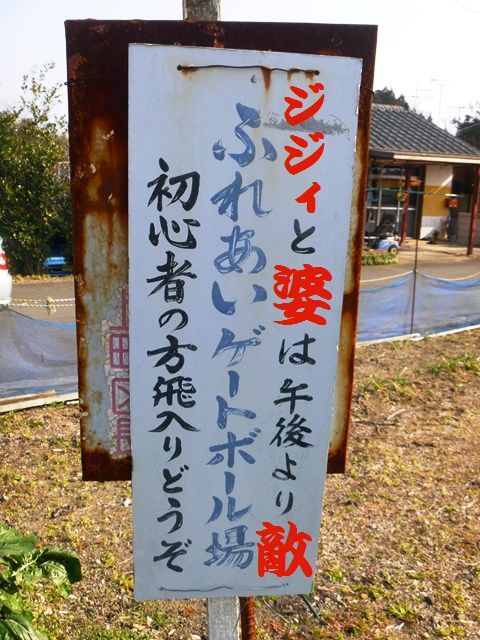 ジジィと婆は午後より敵
ふれあいゲートボール場
初心者の方飛入りどうぞ